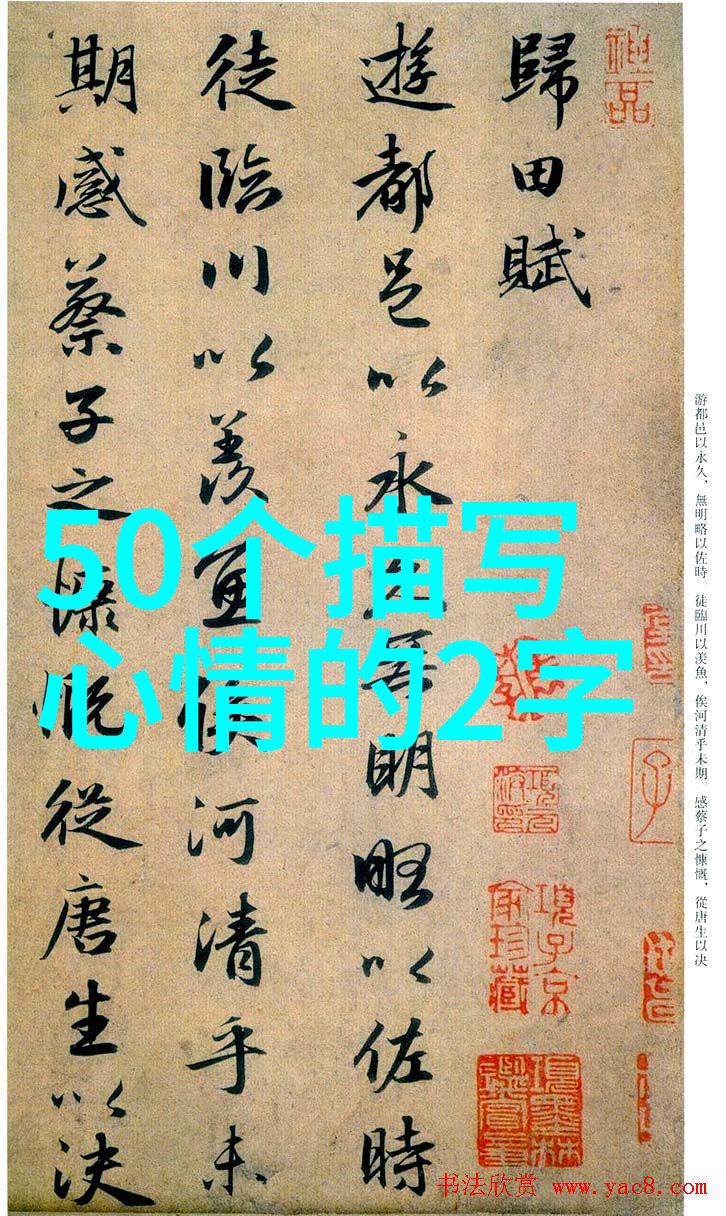 50个描写
心情的2字
神品
歸田賦
遊都邑以永久無明略以佐時
徒臨川以羨魚俟河清乎未
期感蔡子之慷慨從唐生以決
項子京家珍藏
項墨林鑑賞章
游都邑以永久，無明略以佐時。徒臨川以羨魚，俟河清乎未期。感蔡子之慷慨，從唐生以決
书法欣赏 www.yac8.com